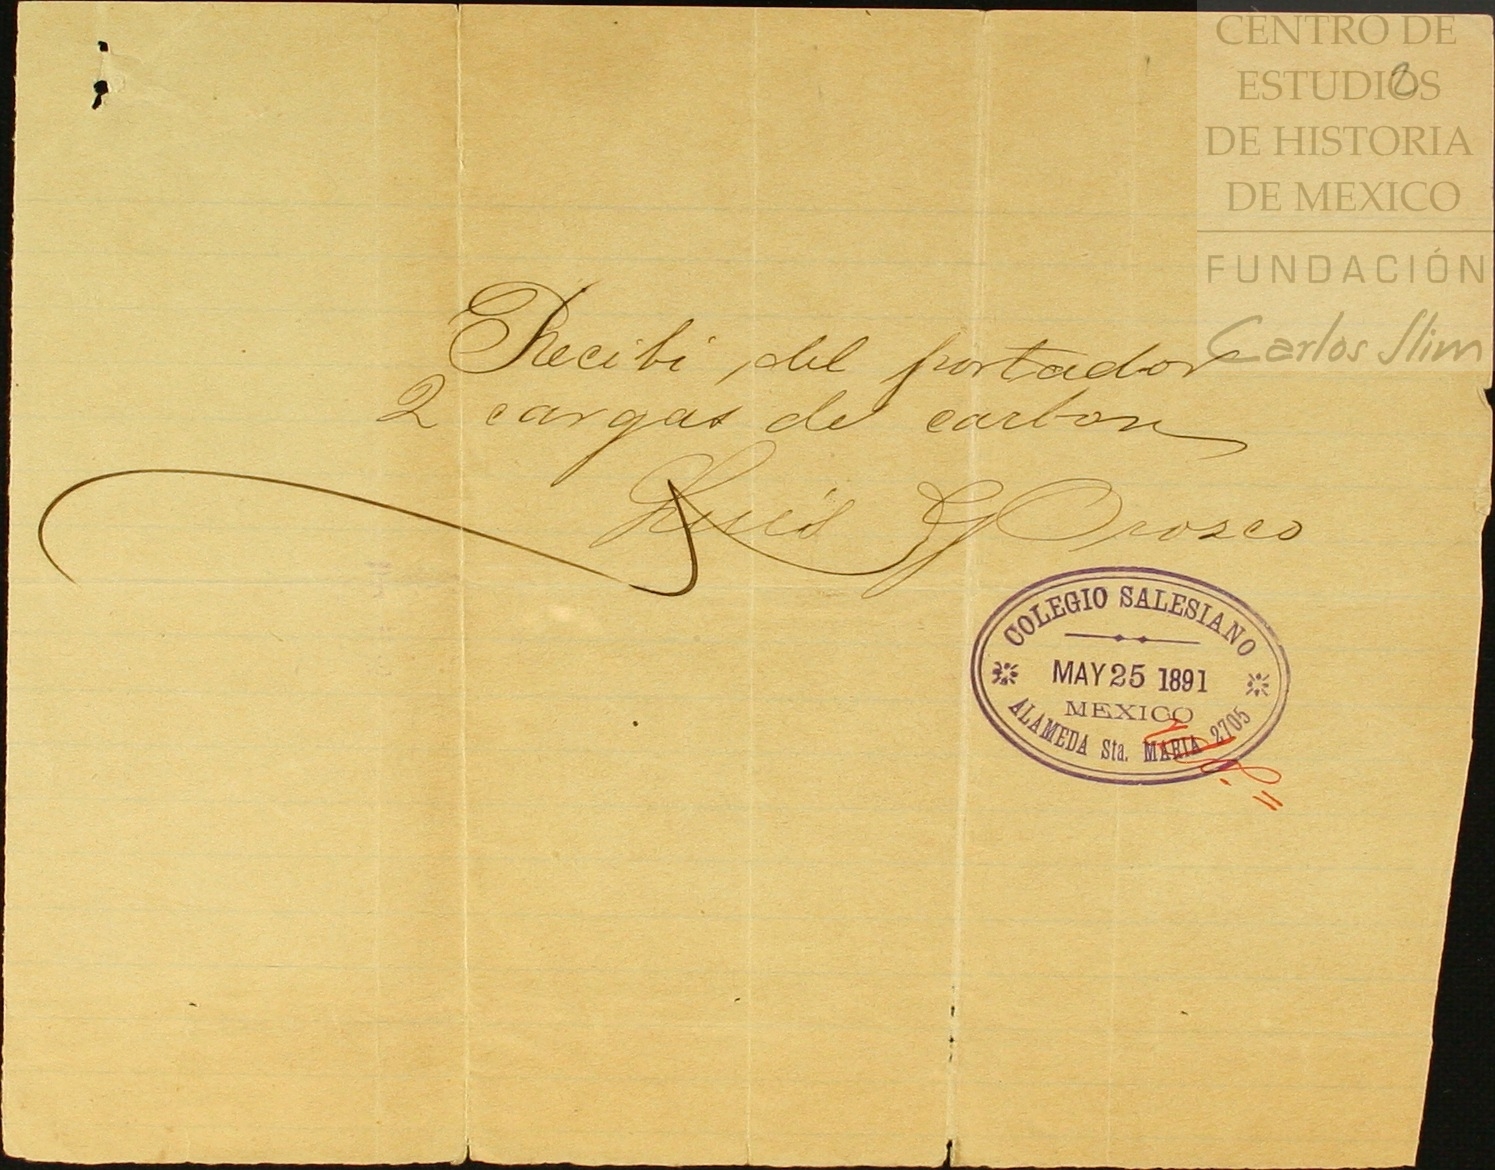 CENTRO DE
ESTUDIOS
DE HISTORIA
DE MEXICO
FUNDACIÓN
Carlos Slim
2
Recibi del portador
2 cargas de carbon
Luis G Orosco
COLEGIO SALESIANO
MAY 25 1891
MEXICO
ALAMEDA Sta. MARIA 2705